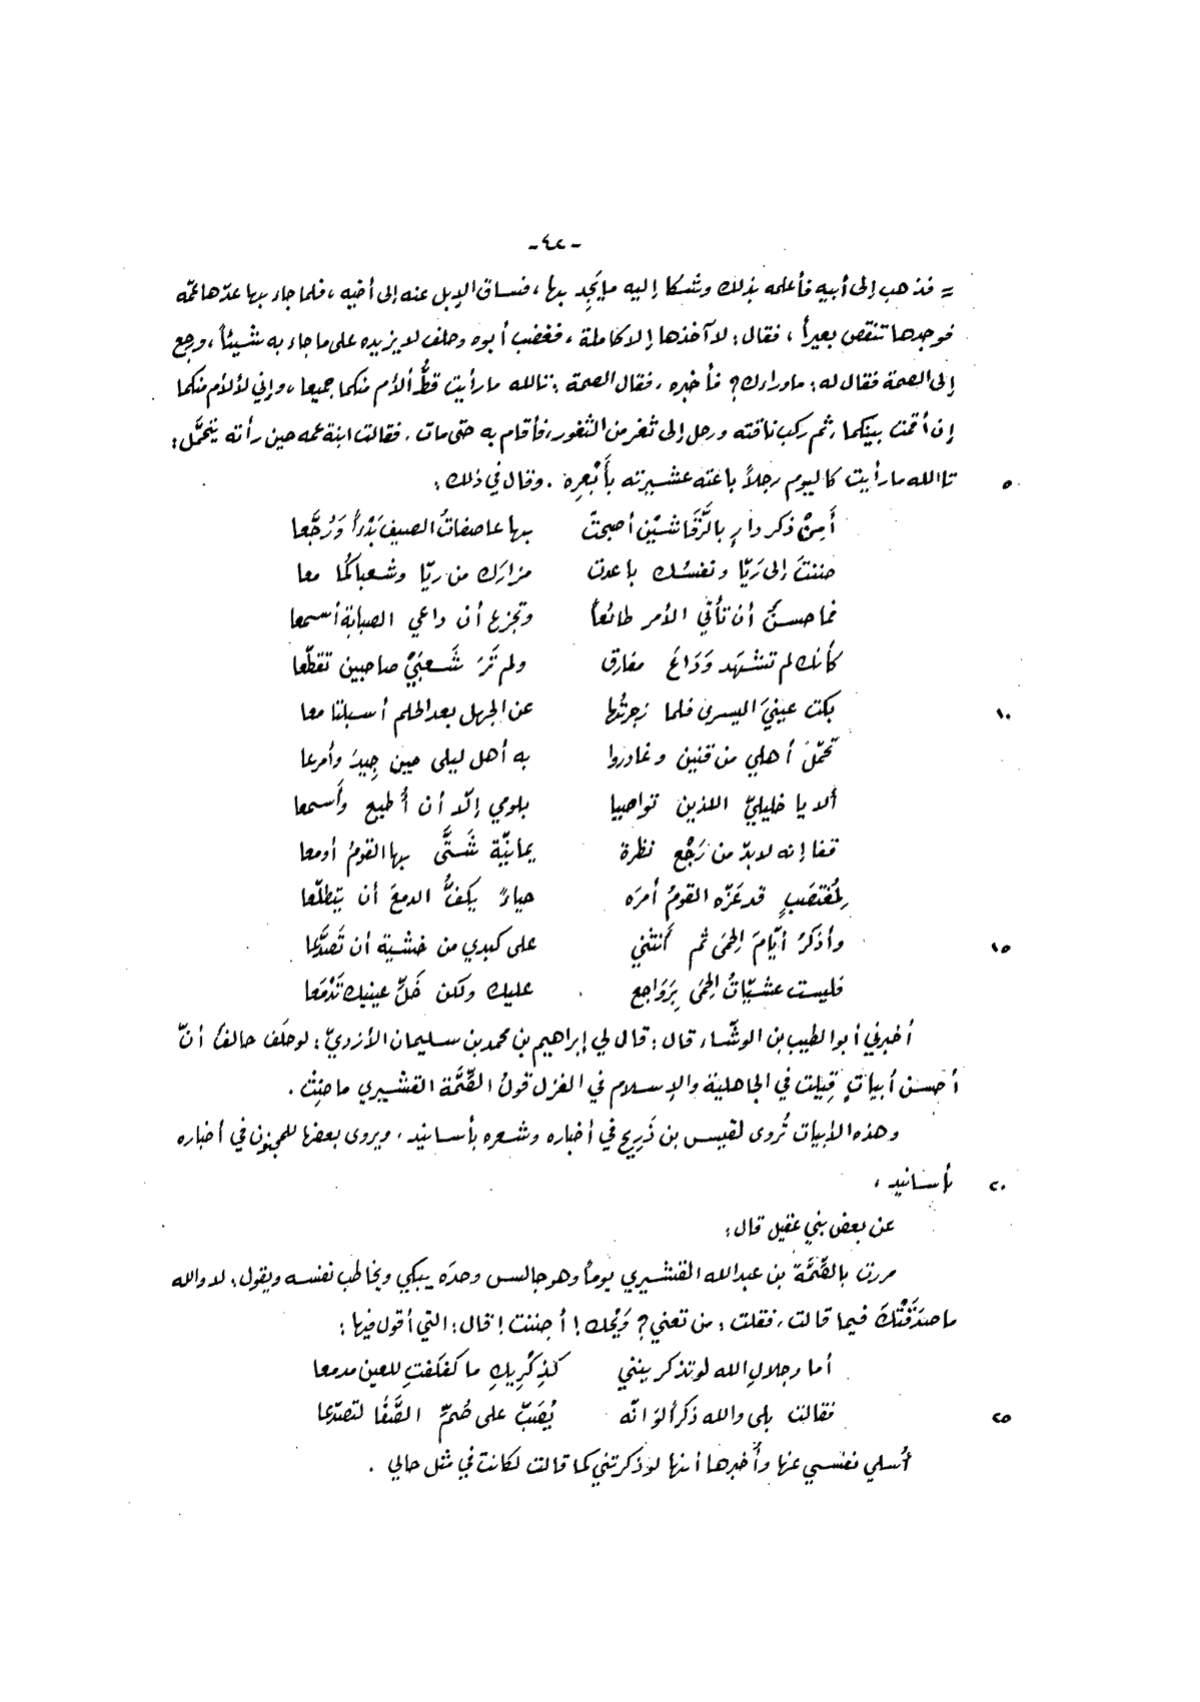 -٤٢-
= فذهب إلى أبيه فأعلمه بذلك وشكا إليه ما يَجِد بها، فساق الإبل عنه إلى أخيه، فلما جاء بها عدّها عمّه
فوجدها تنقص بعيراً، فقال: لا آخذها إلا كاملة، فغضب أبوه وحلف لا يزيده على ما جاء به شيئاً، ورجع
إلى الصمة فقال له: ما وراءك؟ فأخبره، فقال الصمة: تالله ما رأيت قطُّ ألأم منكما جميعا، وإني لألأم منكما
إن أقمت بينكما، ثم ركب ناقته ورحل إلى ثغر من الثغور، فأقام به حتى مات، فقالت ابنة عمه حين رأته يتحمَّل:
تا الله ما رأيت كاليوم رجلاً باعته عشيرته بأَبْعِرة. وقال في ذلك: ٥
أَمِنْ ذكر دارٍ بالرَّقَاشَيْن أصبحتْ بها عاصفاتُ الصيف بَدْءاً وَرُجَّعا
حننتَ إلى رَيّا ونفسُك باعدت مزارَك من ريّا وشعباكُما معا
فما حسنٌ أن تأتي الأمر طائعاً وتجزع أن داعي الصبابة أسمعا
كأنك لم تشهد وَدَاعَ مفارق ولم تَرَ شَعبَيْ صاحبين تقطّعا
بكت عينيَ اليسرى فلما زجرتُها عن الجهل بعد الحلم أسبلتا معا ١٠
تحمّل أهلي من قنين وغادروا به أهل ليلى حين جِيدَ وأمرعا
ألا يا خليليّ اللذين تواصيا بلومي إلّا أن أُطيع وأَسمعا
قفا إنه لا بدّ من رَجْع نظرة يمانيّة شَتَّى بها القومُ أو معا
لِمُغتصَبٍ قد عَزّه القومُ أمرَه حياءً يكفُّ الدمعَ أن يتطلّعا
وأذكرُ أيّامَ الحِمَى ثم أنثني على كبدي من خشية أن تَصدَّعا ١٥
فليست عشيّاتُ الحِمَى بِرَوَاجع عليك ولكن خَلِّ عينيك تَدْمَعا
أخبرني أبو الطيب بن الوشّاء قال: قال لي إبراهيم بن محمد بن سليمان الأزديّ: لو حلَف حالفٌ أنّ
أحسن أبياتٍ قِيلت في الجاهلية والإسلام في الغزل قولُ الصِّمَّة القشيري ما حَنِثْ.
وهذه الأبيات تُروى لقيس بن ذَرِيح في أخباره وشعره بأسانيد، ويروى بعضها للمجنون في أخباره
بأسانيد، ٢٠
عن بعض بني عقيل قال:
مررت بالصِّمَّة بن عبد الله القشيري يوماً وهو جالس وحدَه يبكي ويخاطب نفسه ويقول: لا والله
ما صَدَقَتْكَ فيما قالت، فقلت: من تعني؟ وَيْحك! أجننت! قال: التي أقول فيها:
أما وجلالِ الله لو تذكرينني كذِكْرِيكِ ما كفكفتِ للعين مدمعا
فقالت بلى والله ذكراً لو انّه يُصَبّ على صُمِّ الصَّفا لتصدّعا ٢٥
أُسلي نفسي عنها وأُخبرها أنها لو ذكرتني كما قالت لكانت في مثل حالي.